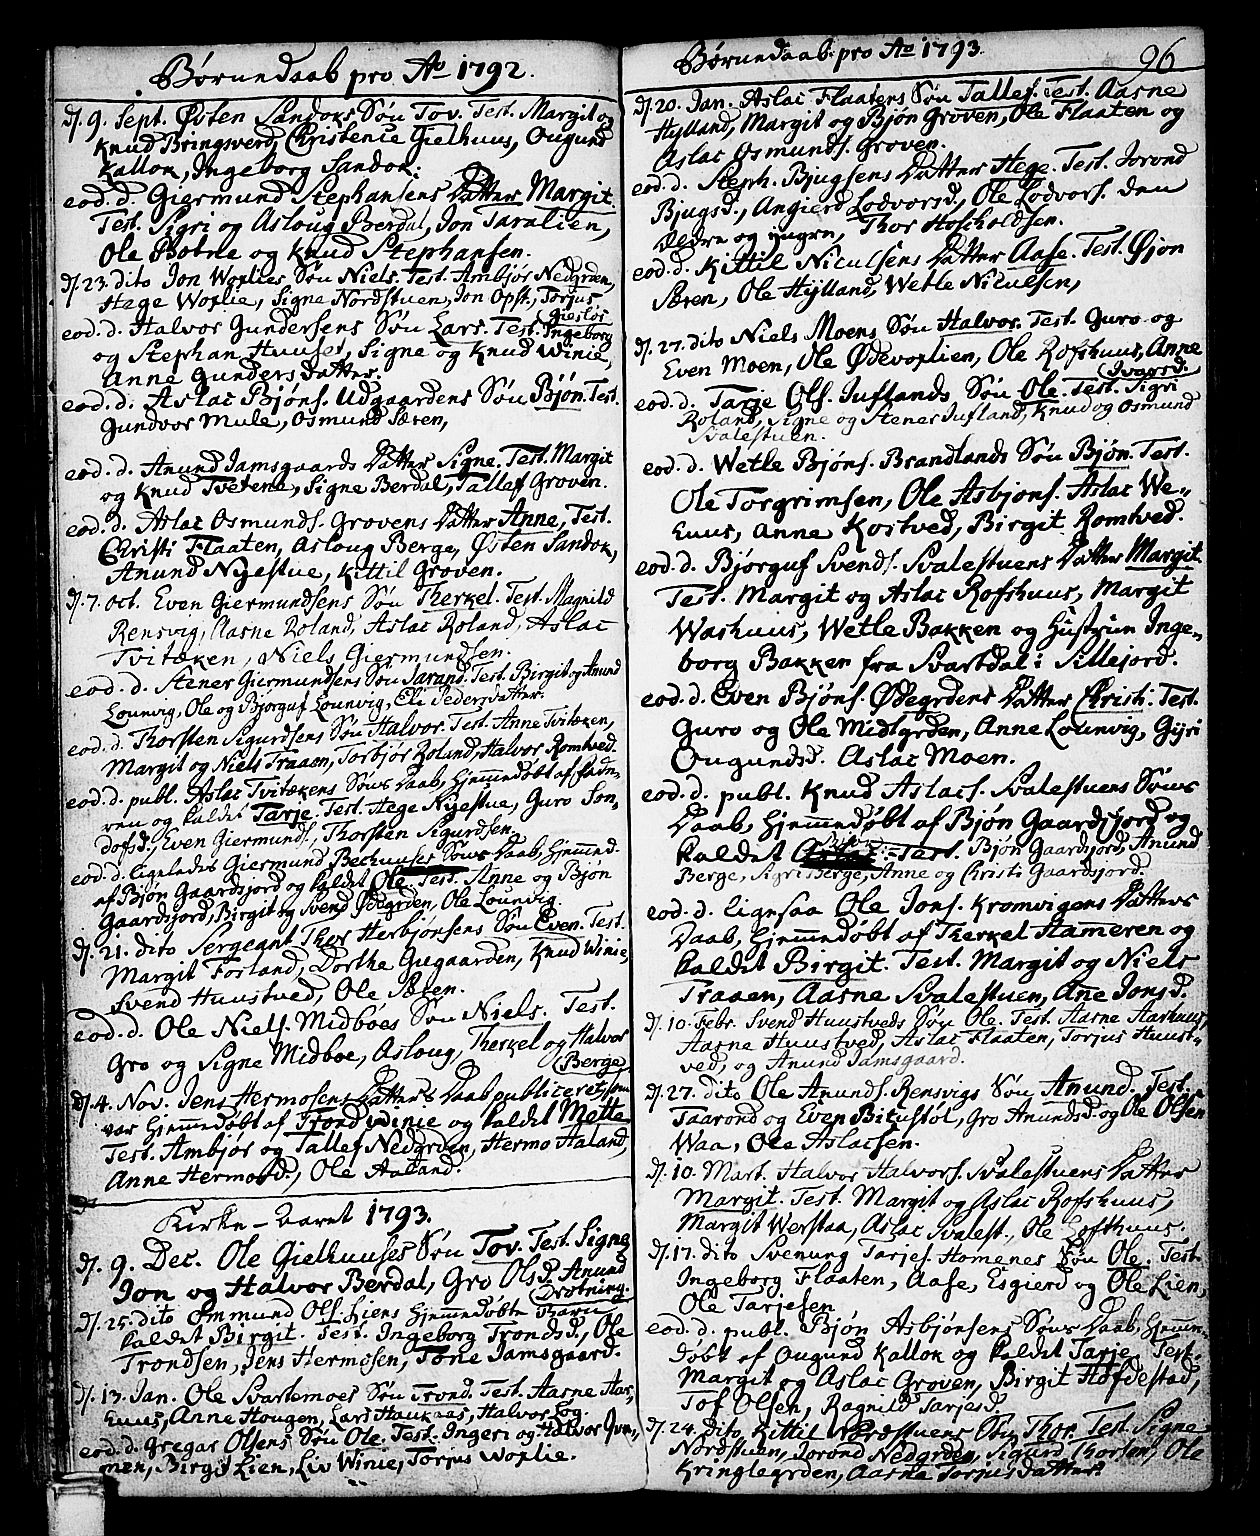 Børnedaab pro Ao 1792.
d. 9. Sept. Østen Sandoks Søn Tov. Test. Margit og
Knud Bringsverd, Christence Gielhuus, Ougund
Kallok, Ingeborg Sandok.
eod. d. Giermund Stephansens Datter Margit.
Test. Sigri og Asloug Berdal, Jon Taralien,
Ole Botne og Knud Stephansen.
d. 23. dito Jon Woplies Søn Niels. Test. Ambjør Nedgrden,
Hage Woplie, Signe Nordstuen, Jon Opst, Torjus
Gieslös
eod. d. Halvor Gundersens Søn Lars. Test. Ingeborg
og Stephan Huuser, Signe og Knud Winie,
Anne Gundersdatter.
eod. d. Aslac Bjöns. Udgaardens Søn Bjøn. Test.
Gundvor Mule, Osmund Særen,
eod. d. Anund Jamsgaards Datter Signe. Test. Margit
og Knud Tvetene, Signe Berdal, Tallef Groven.
eod. d. Aslac Osmunds. Grovens Datter Anne, Test.
Christi Flaaten, Asloug Berge, Østen Sandok,
Anund Nyestue, Kittil Groven.
d. 7. Oct. Even Giermundsens Søn Therkel. Test. Magnild
Rensvig, Aasne Roland, Aslac Roland, Aslac
Tvitæken, Niels Giermundsen.
eod. d. Stener Giermundsens Søn Sarand. Test. Birgit og Anund
Lounvig, Ole og Bjørguf Lounvig, Eli Pedersdatter.
eod. d. Thorsten Sigurdsens Søn Halvor. Test. Anne Tvitæken,
Margit og Niels Traaen, Torbjør Roland, Halvor Romtved.
eod. d. publ. Aslac Tvitækens Søns Daab, hjemmedøbt af Fade-
ren og kaldet Tarje. Test. Hege Nyestue, Guro Son-
dofsd. Even Giermunds. Thorsten Sigurdsen.
eod. d. ligeledes Giermund Bechuuses Søns Daab, hjemmed.
af Bjøn Gaardsjord og kaldet Ole. Test. Anne og Bjøn
Gaardsjord, Birgit og Svend Ødegrden, Ole Lounvig.
d. 21. dito Sergeant Thor Herbjørsens Søn Even. Test.
Margit Forland, Dorthe Gugaarden, Knud Winie,
Svend Huustved, Ole Særen.
eod. d. Ole Niels. Midböes Søn Niels. Test.
Gro og Signe Midboe, Asloug, Therkel og Halvor
Berge
d. 4. Nov. Jens Hermosens Datters Daab publiceret, som
var hjemmedøbt af Trond Winie og kaldet Mette
Test. Ambjør og Tallef Nedgrden, Hermo Haland,
Anne Hermosd., Ole Aaland.
Kirke-Aaret 1793.
d. 9. Dec. Ole Gielhuuses Søn Tov. Test. Signe
Jon og Halvor Berdal, Gro Olsd. Anund
Drotning.
d. 25. dito Ommund Ols. Liens hjemmedøbte Barn
kaldet Birgit. Test. Ingeborg Trondsd., Ole
Trondsen, Jens Hermosen, Tone Jamsgaard.
d. 13. Jan. Ole Svartemoes Søn Trond. Test. Aasne Aas,
Anne Hougen, Lars Haukaas, Halvor Log.
eod. d. Gregar Olsens Søn Ole. Test. Ingeri og Halvor
Birgit Lien, Liv Winie, Torjus Woplie.
Børnedaab pro Ao 1793.
96
d. 20. Jan. Aslac Flaatens Søn Tallef. Test. Aasne
Hylland, Margit og Bjøn Groven, Ole Flaaten og
Aslac Osmunds. Groven.
eod. d. Steph. Bjugsens Datter Hege. Test. Jorond
Bjugsd., Angierd Lodvorsd, Ole Lodvors. den
Ældre og yngre, Thor Hosholdsen.
eod. d. Kittil Niculsens Datter Aase. Test. Øjon
Særen, Ole Hylland, Wetle Niculsen,
d. 27. dito Niels Moens Søn Halvor. Test. Guro og
Even Moen, Ole Ødevoplien, Ole Rofshuus, Anne
Ivarsd.
eod. d. Tarje Ols. Juflands Søn Ole. Test. Sigri
Roland, Signe og Stener Jufland, Knud og Osmund
Svalestuen.
eod. d. Wetle Bjøns. Brandlands Søn Bjøn. Test.
Ole Torgrimsen, Ole Asbjøns. Aslac We-
huus, Anne Kostved, Birgit Romtved.
eod. d. Bjørguf Svends. Svalestuens Datter Margit
Test. Margit og Aslac Rofshuus, Margit
Washuus, Wetle Bakken og Hustrue Inge-
borg Bakken fra Svartdal i Sillejord.
eod. d. Even Bjøns. Ødegrdens Datter Christi. Test.
Guro og Ole Midtgrden, Anne Lounvig, Gyri
Ougundsd. Aslac Moen.
eod. d. publ. Knud Aslacs. Svalestuens Søns
Daab, hjemmedøbt af Bjøn Gaardsjord og
kaldet Test. Bjøn Gaardsjord, Anund
Berge, Sigri Berge, Anne og Christi Gaardsjord.
eod. d. ligesaa Ole Jons. Kromvigens Datters
Daab, hjemmedøbt af Therkel Hameren og
kaldet Birgit. Test. Margit og Niels
Traaen, Aasne Svalestuen, Ane Jonsd.
d. 10. Febr. Svend Huustveds Søn Ole. Test. Aasne Aashuus,
Aasne Huustved, Aslac Flaaten, Torjus Huust-
ved, og Anund Jamsgaard.
d. 27. dito Ole Anunds. Rensvigs Søn Anund. Test.
Taarond og Even Bitustöl, Gro Anundsd. og Ole Olsen
Waa, Ole Aslacsen.
d. 10. Mart. Halvor Halvors. Svalestuens Datter
Margit. Test. Margit og Aslac Rofshuus,
Margit Werstaa, Aslac Svalest., Ole Lofthuus.
d. 17. dito Svenung Tarjes. Homenes Søn Ole. Test
Ingeborg Flaaten, Aase, Esgierd og Ole Lien,
Ole Tarjesen
eod. d. publ. Bjøn Asbjønsens Søns Daab, hjemme-
døbt af Ougund Kallok og kaldet Tarje. Test.
Margit og Aslac Groven, Birgit Hofdestad,
Tof Olsen, Ragnild Tarjesd.
d. 24. dito, Kittil Nordstuens Søn Thor. Test. Signe
Nordstuen, Jorond Nedgrden, Sigurd Thorsen, Ole
Kringlegrden, Aasne Torjusdatter.